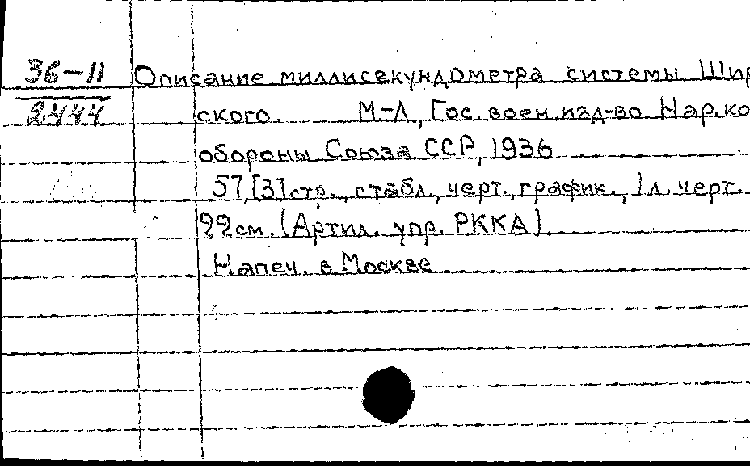 36-11
2444
Описание миллисекундометра системы Шир
ского М-Л, Гос. воен. изд-во Нар. ко
обороны Союза ССР, 1936
57, [3] стр., с табл., черт., график., 1 л. черт.
22 см. (Артил. упр. РККА)
Напеч. в Москве